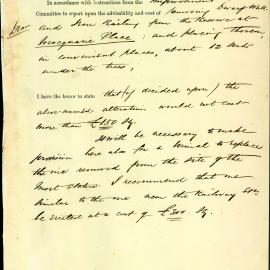 In accordance with instructions from the Improvement
Committee to report upon the advisability and cost of removing Dwarf Wall
and Iron Railing from the Reserve at
Macquarie Place; and placing thereon,
in convenient places, about 12 seats
under the trees;
I have the honor to state that (if decided upon) the
above-named alteration would not cost
more than £150 Stg.
It will be necessary to make
provision here also for a Urinal to replace
the one removed from the site of the
Mort Statue. I recommend that one
similar to the one near the Railway
be erected at a cost of £300 Stg.